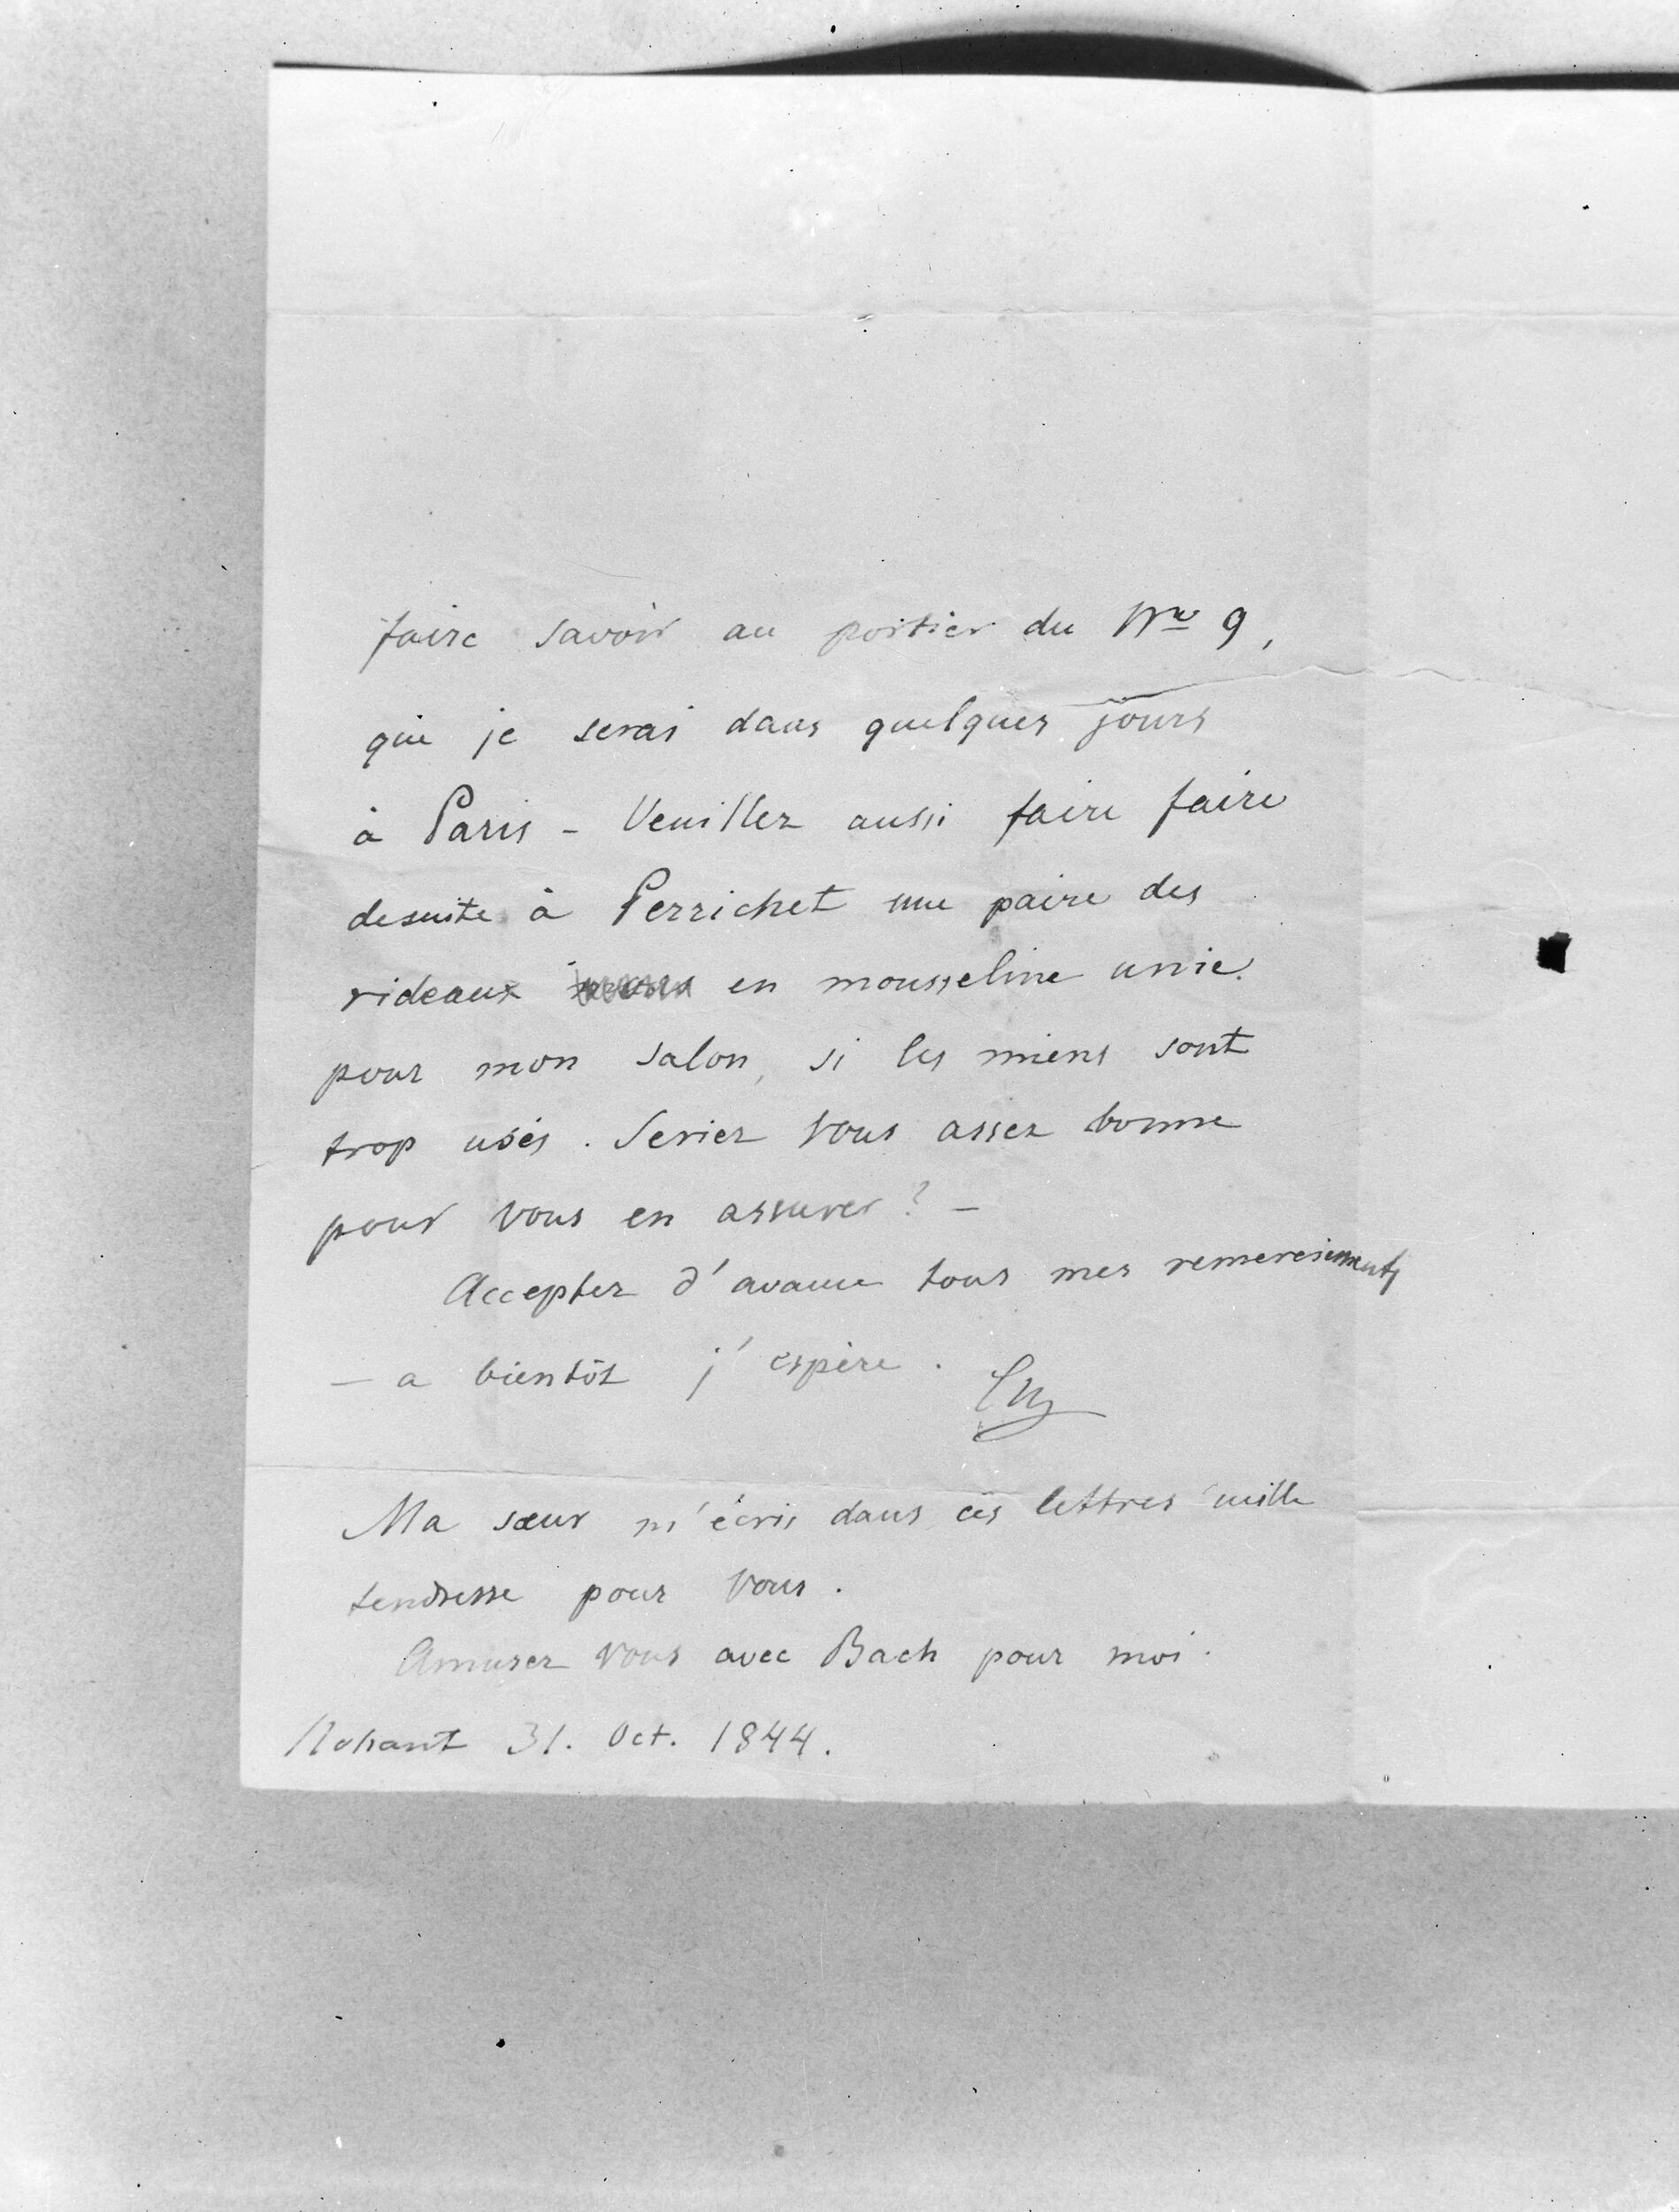 faire savoir au portier du Nro 9,
que je serai dans quelques jours
à Paris - Veuillez aussi faire faire
desuite à Perrichet une paire des
rideaux en mousseline unie.
pour mon salon, si les miens sont
trop usés. Seriez vous assez bonne
pour vous en assurer? -
Acceptez d'avance tous mes remerciements
- a bientôt j'espère. Ch
Ma sœur m'écris dans ces lettres mille
tendresse pour vous.
Amusez vous avec Bach pour moi.
Nohant 31. Oct. 1844.